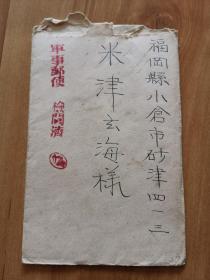 福岡縣小倉市砂津四一三
米津玄海様
軍事郵便
検閲済